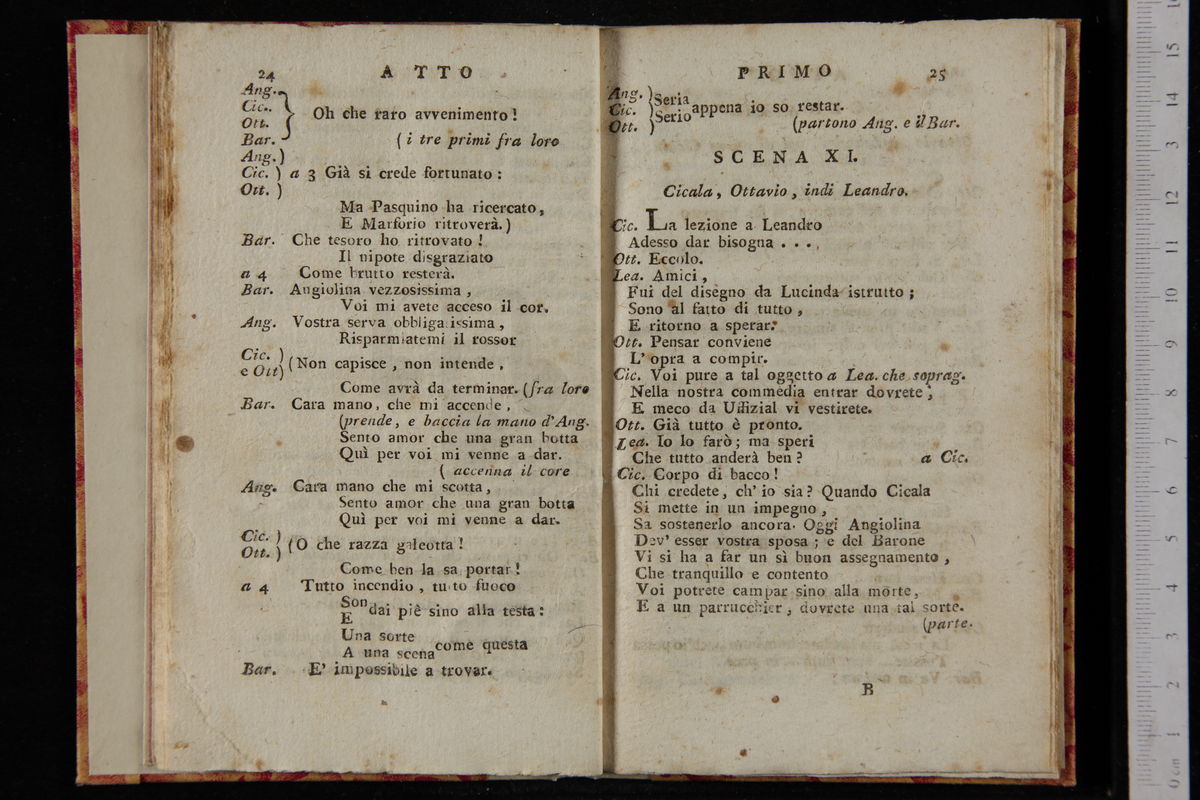 24 ATTO
Ang.
Cic.
Ott. Oh che raro avvenimento!
Bar. (i tre primi fra loro
Ang.)
Cic. ) a 3 Già si crede fortunato:
Ott. )
Ma Pasquino ha ricercato,
E Marforio ritroverà.)
Bar. Che tesoro ho ritrovato!
Il nipote disgraziato
a 4 Come brutto resterà.
Bar. Angiolina vezzosissima,
Voi mi avete acceso il cor.
Ang. Vostra serva obbligatissima,
Risparmiatemi il rossor
Cic. )
e Ott) (Non capisce, non intende,
Come avrà da terminar. (fra loro
Bar. Cara mano, che mi accende,
(prende, e baccia la mano d'Ang.
Sento amor che una gran botta
Quì per voi mi venne a dar.
( accenna il core
Ang. Cara mano che mi scotta,
Sento amor che una gran botta
Quì per voi mi venne a dar.
Cic. )
Ott. ) (O che razza galeotta!
Come ben la sa portar!
a 4 Tutto incendio, tutto fuoco
Son
E dai piè sino alla testa:
Una sorte
A una scena come questa
Bar. E' impossibile a trovar.
PRIMO 25
Ang. ) Seria
Cic. ) Serio appena io so restar.
Ott. ) (partono Ang. e il Bar.
SCENA XI.
Cicala, Ottavio, indi Leandro.
Cic. La lezione a Leandro
Adesso dar bisogna . . . .
Ott. Eccolo.
Lea. Amici,
Fui del disegno da Lucinda istrutto;
Sono al fatto di tutto,
E ritorno a sperar.
Ott. Pensar conviene
L' opra a compir.
Cic. Voi pure a tal oggetto a Lea. che soprag.
Nella nostra commedia entrar dovrete,
E meco da Ufizial vi vestirete.
Ott. Già tutto è pronto.
Lea. Io lo farò; ma speri
Che tutto anderà ben? a Cic.
Cic. Corpo di bacco!
Chi credete, ch' io sia? Quando Cicala
Si mette in un impegno,
Sa sostenerlo ancora. Oggi Angiolina
Dev' esser vostra sposa; e del Barone
Vi si ha a far un sì buon assegnamento,
Che tranquillo e contento
Voi potrete campar sino alla morte,
E a un parrucchier, dovrete una tal sorte.
(parte.
B